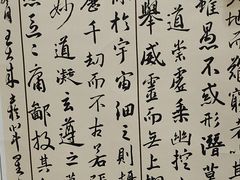 雖愚不惑形潛莫
道崇虛乘幽控
舉威靈而無上
於宇宙細之則攝
歷千劫而不古若隱
妙道凝玄遵之莫
區區庸鄙投其